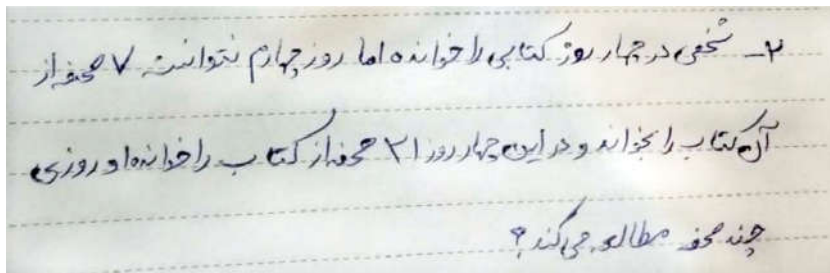 ۲- شخصی در چهار روز کتابی را خوانده اما روز چهارم نتوانسته ۷ صحفه از
آن کتاب را بخواند و در این چهار روز ۲۱ صحفه از کتاب را خوانده او روزی
چند صحفه مطالعه می‌کند؟